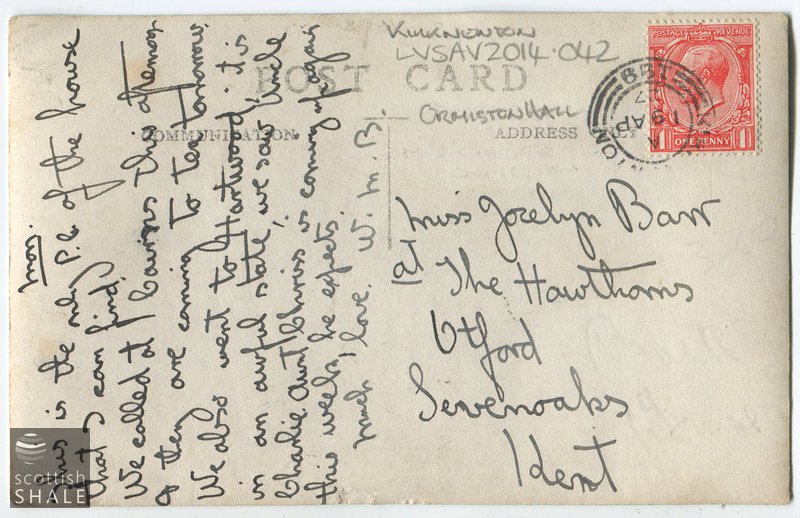 KIRKNEWTON
LVSAV2014.042
POST CARD
ORMISTON HALL
COMMUNICATION
ADDRESS ONLY
Mon.
This is the only P.C. of the house
that I can find.
We called at Cairns this afternoon
& they are coming to tea tomorrow.
We also went to Hartwood, it is
in an awful state, we saw Uncle
Charlie. Aunt Chriss is coming up again
this week, he expects.
Much love. W. M. B.
Miss Jocelyn Barr
at The Hawthorns
Otford
Sevenoaks
Kent
POSTAGE REVENUE
1 ONE PENNY 1
19 AP
scottish
SHALE